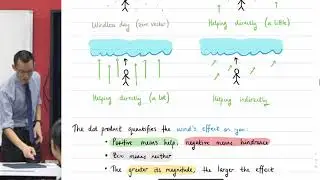 Windless day (zero vector)
Helping directly (a little)
Helping directly (a lot)
Helping indirectly
The dot product quantifies the wind's effect on you:
• Positive means help, negative means hindrance
• Zero means neither
• The greater its magnitude, the larger the effect